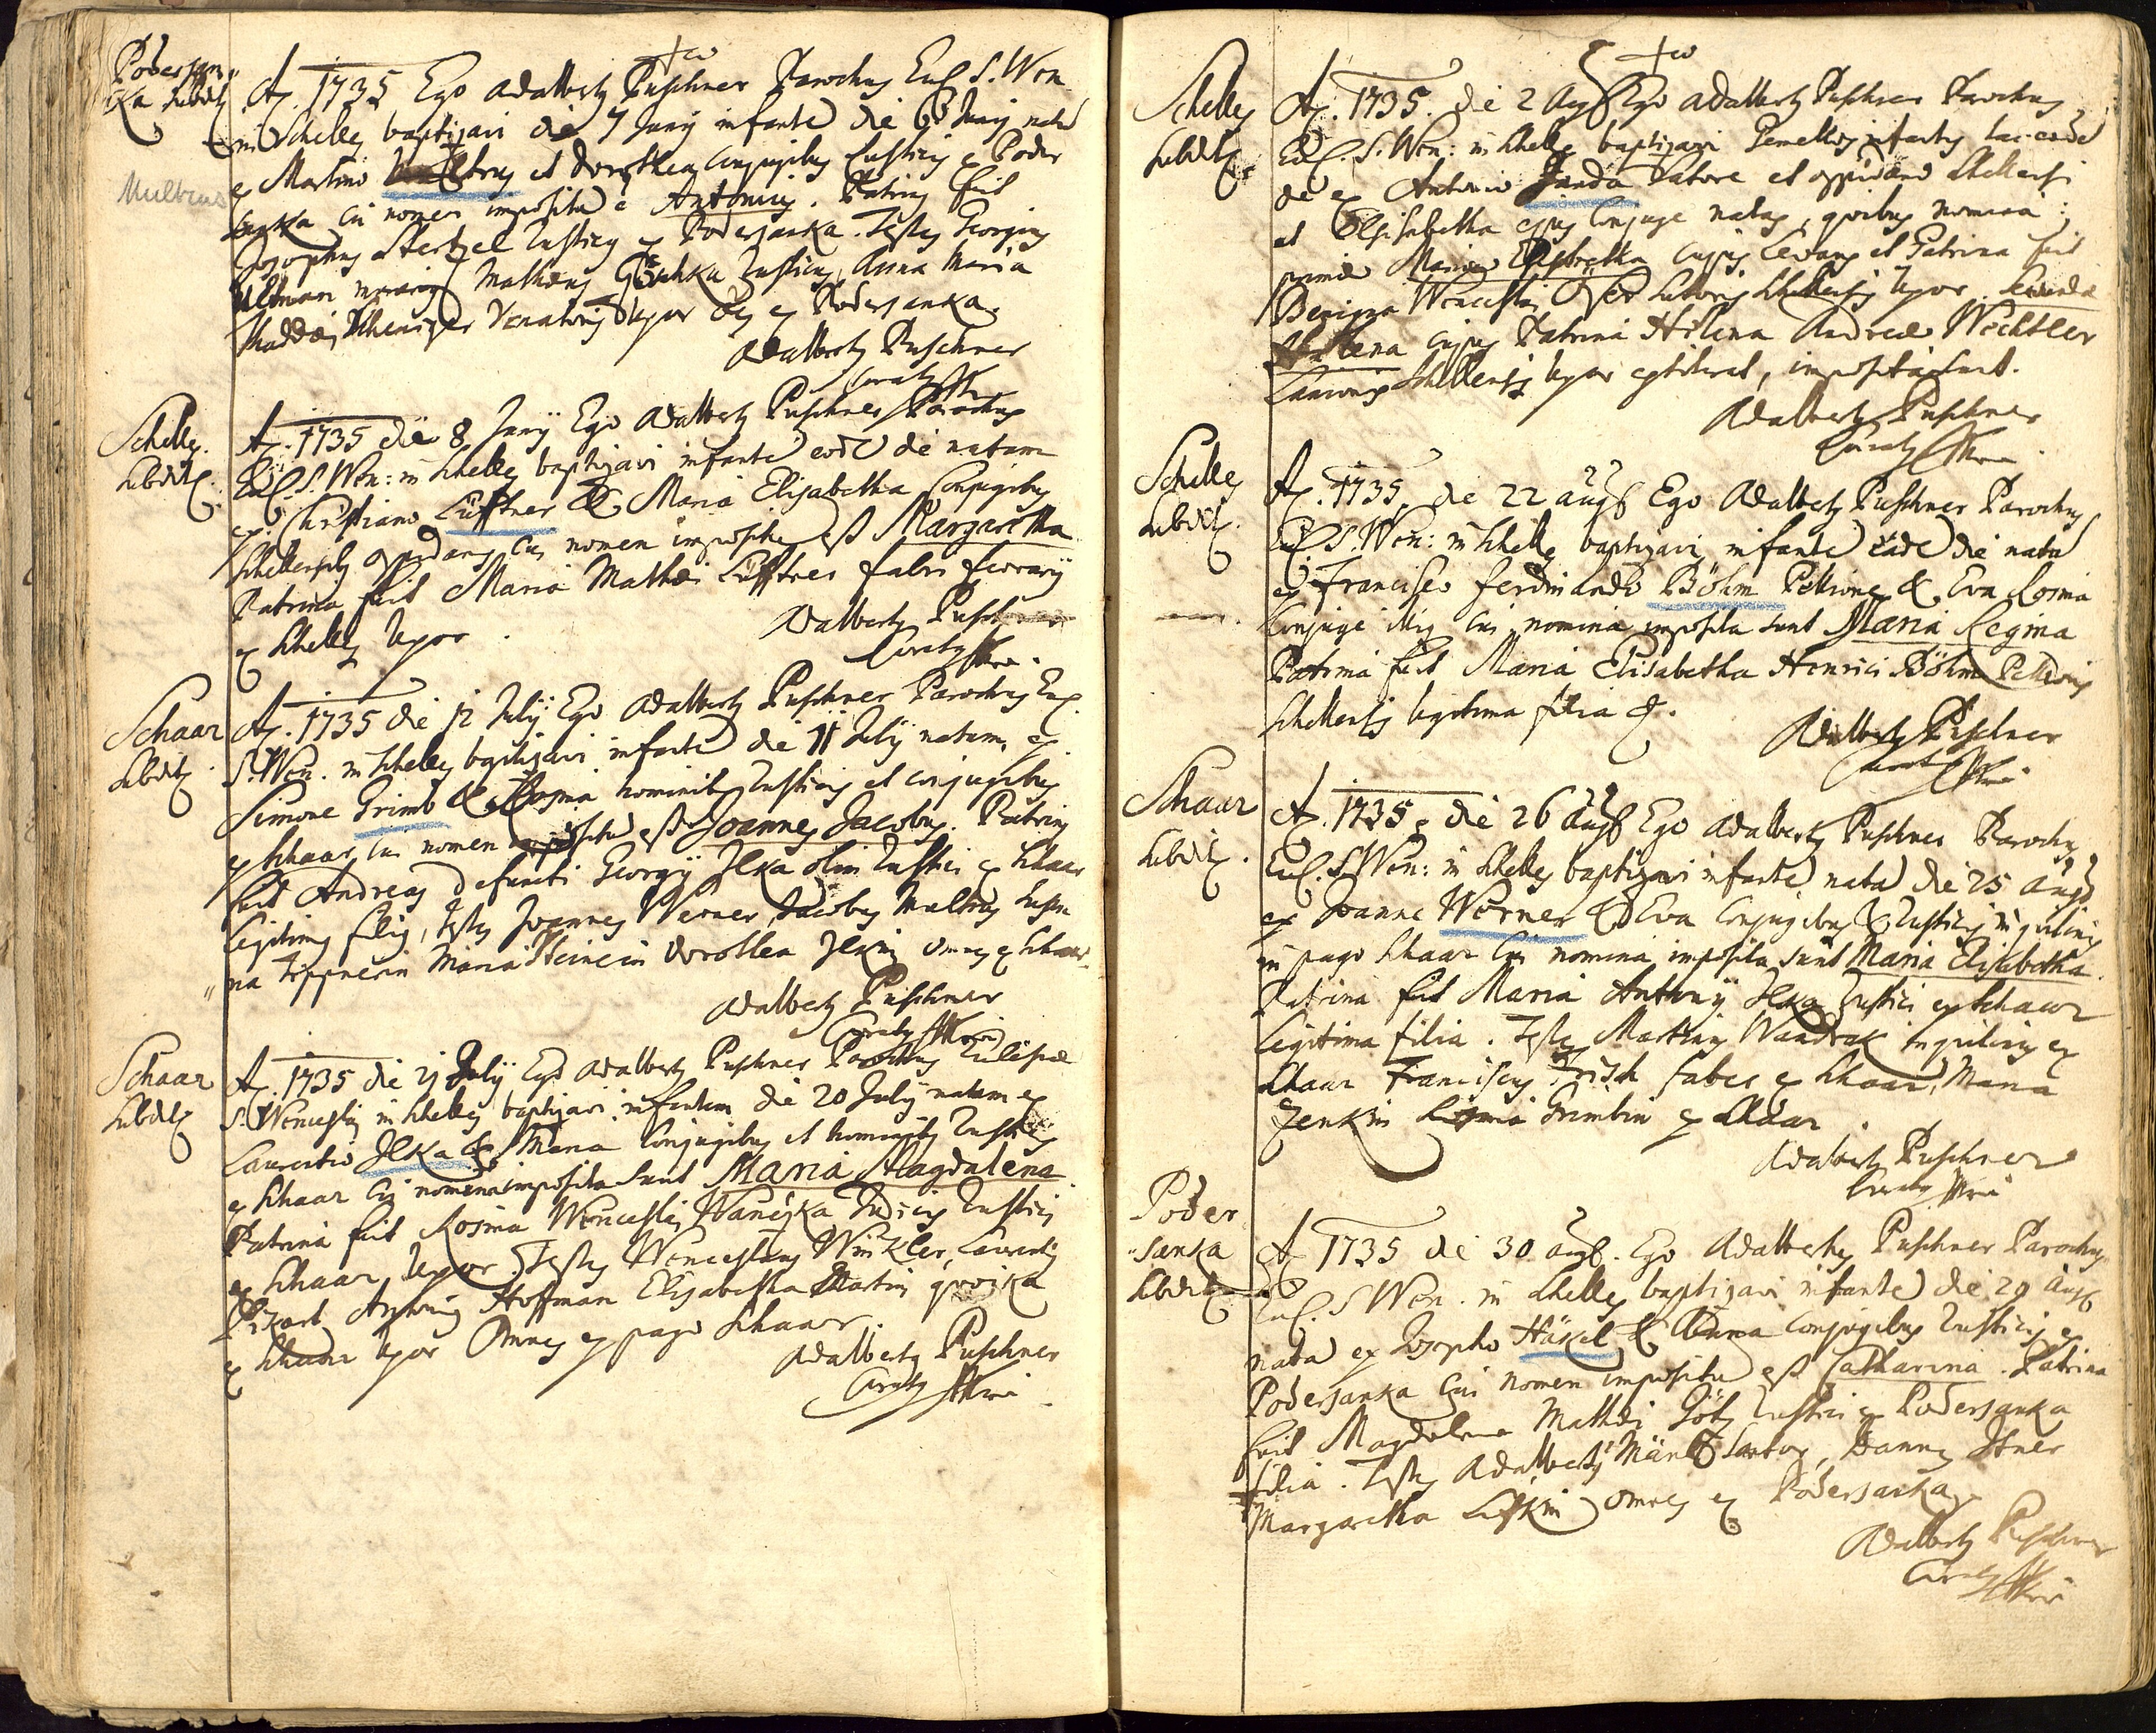 Poderssan„
ka Subdit
A. 1735 Ego Adalbertg Puschner Parochus Eccl. S. Wen
in Schelles baptizavi die 7 Junij infante die 6 Junij nata
ex Martino et Dorothea Conjugibus Rusticis ex Poder
sanka cui nomen imposita ē Antonius. Patrinus fuit
Josephus Hertzel Rusticus ex Podersanka. Testes Georgius
Ultman Mathaeus Rusticus, Anna Maria
Thaddaei Venatoris Uxor oes ex Podersanka.
Adalbertg Puschner
Curatg
Multrus
Schelles.
Subdit.
A. 1735 die 8 Junij Ego Adalbertg Puschner Parochus
Eccl. S. Wen: in Schelles baptizavi infante eode die natam
ex Christiano Lufftner & Maria Elisabetha Conjugibus
Schellensibus oppidanis cui nomen imposita est Margaretha
Patrina fuit Maria Mathaei Lufftner fabri ferrarij
ex Schelles Uxor.
Adalbertg Pusch
Curatg
Schaar
Subdit.
A. 1735 die 12 Julij Ego Adalbertg Puschner Parochus Eccl.
S. Wen. in Schelles baptizavi infante die 11 Julij natam ex
Simone Grimb & Rosina nominibus Rusticis et conjugibus
ex Schaar cui nomen imposita est Joannes Jacobus. Patrinus
fuit Andreas defuncti Georgij Ilka olim Rustici ex Schaar
Legitimus filius, Testes Joannes Werner, Jacobus Multrus Susan
„na Tippnerin Maria Steinein Dorothea Ilkin Omnes ex Schaar.
Adalbertg Puschner
Curatg
Schaar
Subdit
A. 1735 die 21 Julij Ego Adalbertg Puschner Parochus Ecclesiae
S. Wenceslai in Schelles baptizavi infantem die 20 July natam ex
Laurentio Ilka & Maria Conjugibus et hominibus Rusticis
ex Schaar cui nomina imposita sunt Maria Magdalena.
Patrina fuit Rosina Wenceslai Waniska Judicis Rustici
ex Schaar Uxor. Testes Wenceslaus Winkler, Laurentius
Antonius Hoffman Elisabetha Martini
ex Schaar Uxor Omnes ex pago Schaar.
Adalbertg Puschner
Curatg
Schelles
Subdit.
A. 1735. die 2 Aug Ego Adalbertg Puschner Parochus
Eccl. S. Wen: in Schelles baptizavi Gemellos infantes hac eade
die ex Antonio Janda Satore et oppidano Schellensi
et Elisabetha ejus Conjuge natas, quibus nomina:
primae Maria Elisabetha cujus Levans et Patrina fuit
Benigna Wenceslai Schellensis Uxor, Secundae
Helena cujus Patrina Helena Andreae Wechtler
Schellensis Uxor extiterat, imposita sunt.
Adalbertg Puschner
Curatg
Schelles
Subdit.
A. 1735, die 22 aug Ego Adalbertg Puschner Parochus
Eccl. S. Wen: in Schelles baptizavi infante eade die nata
ex Francisco Ferdinando Böhm Pellione & Eva Rosina
Conjuge illius cui nomina imposita sunt Maria Regina
Patrina fuit Maria Elisabetha Henrici Böhm Pellionis
Schellensis legitima filia.
Adalbertg Puschner
Curatg
Schaar
Subdit.
A. 1735, die 26 Aug Ego Adalbertg Puschner Parochus
Eccl. S. Wen: in Schelles baptizavi infante nata die 25 Aug
ex Joanne Werner & Eva Conjugibus & Rusticis inquilinis
in pago Schaar cui nomina imposita sunt Maria Elisabetha.
Patrina fuit Maria Antonij Ilka Rustici ex Schaar
Legitima filia. Testes Martinus Wandrak inquilinus ex
Schaar Franciscus Frisch faber ex Schaar, Maria
Jenkin Rosina Grimbin ex Schaar.
Adalbertg Puschner
Curatg
Poder
„sanka
Subdit
A. 1735 die 30 aug. Ego Adalbertg Puschner Parochus
Eccl. S. Wen. in Schelles baptizavi infante die 29 Aug
nata ex Josepho Häxel & Anna Conjugibus Rusticis ex
Podersanka cui nomen imposita est Catharina. Patrina
fuit Magdalena Mathaei Götz Rustici ex Podersanka
filia. Testes Adalbertus Sartor, Joannes
Margaretha Omnes ex Podersanka.
Adalbertg Puschner
Curatg